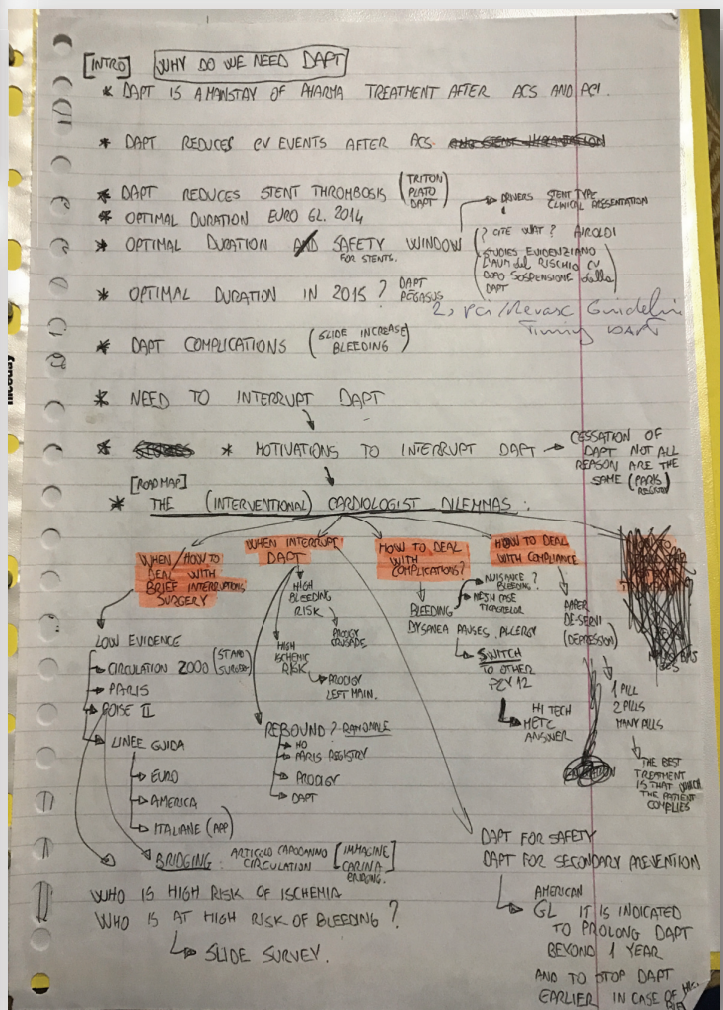 [INTRO] WHY DO WE NEED DAPT
* DAPT IS A MAINSTAY OF PHARMA TREATMENT AFTER ACS AND PCI.
* DAPT REDUCES CV EVENTS AFTER ACS.
* DAPT REDUCES STENT THROMBOSIS (TRITON
PLATO
DAPT)
* OPTIMAL DURATION EURO GL. 2014
* OPTIMAL DURATION AND SAFETY WINDOW
FOR STENTS.
→ DRIVERS STENT TYPE
CLINICAL PRESENTATION
(? CITE WAT? AIROLDI
STUDIES EVIDENZIANO
L'AUM del RISCHIO CV
DOPO SOSPENSIONE della
DAPT)
* OPTIMAL DURATION IN 2015? DAPT
PEGASUS
2, PCI/Revasc Guidelin
Timing DAPT
* DAPT COMPLICATIONS (SLIDE INCREASE
BLEEDING)
* NEED TO INTERRUPT DAPT
* * MOTIVATIONS TO INTERRUPT DAPT → CESSATION OF
DAPT NOT ALL
REASON ARE THE
SAME (PARIS
[ROADMAP]
* THE (INTERVENTIONAL) CARDIOLOGIST DILEMMAS:
WHEN HOW TO
DEAL WITH
BRIEF INTERRUPTIONS
SURGERY
LOW EVIDENCE
CIRCULATION 2000
PARIS
POISE II
LINEE GUIDA
EURO
AMERICA
ITALIANE (APP)
BRIDGING: ARTICOLO CAPODANNO
CIRCULATION
[IMMAGINE
CARINA
BRIDGING.]
WHEN INTERRUPT
DAPT
HIGH
BLEEDING
RISK
PRODIGY
CRUSADE
HIGH
ISCHEMIC
RISK
PRODIGY
LEFT MAIN.
REBOUND? RATIONALE
NO
PARIS REGISTRY
PRODIGY
DAPT
HOW TO DEAL
WITH
COMPLICATIONS?
BLEEDING
NUISANCE?
BLEEDING
TICAGRELOR
DYSPNEA PAUSES ALLERGY
SWITCH
TO OTHER
P2Y12
HI TECH
ANSWER
HOW TO DEAL
WITH COMPLIANCE
PAPER
DE SERVI
(DEPRESSION)
1 PILL
2 PILLS
MANY PILLS
THE BEST
TREATMENT
IS THAT WHICH
THE PATIENT
COMPLIES
DAPT FOR SAFETY
DAPT FOR SECONDARY PREVENTION
AMERICAN
GL IT IS INDICATED
TO PROLONG DAPT
BEYOND 1 YEAR
AND TO STOP DAPT
EARLIER IN CASE OF
WHO IS HIGH RISK OF ISCHEMIA
WHO IS AT HIGH RISK OF BLEEDING?
SLIDE SURVEY.